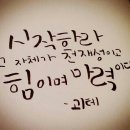 시작하라
그 자체가 천재성이고
힘이며 마력이다
-괴테